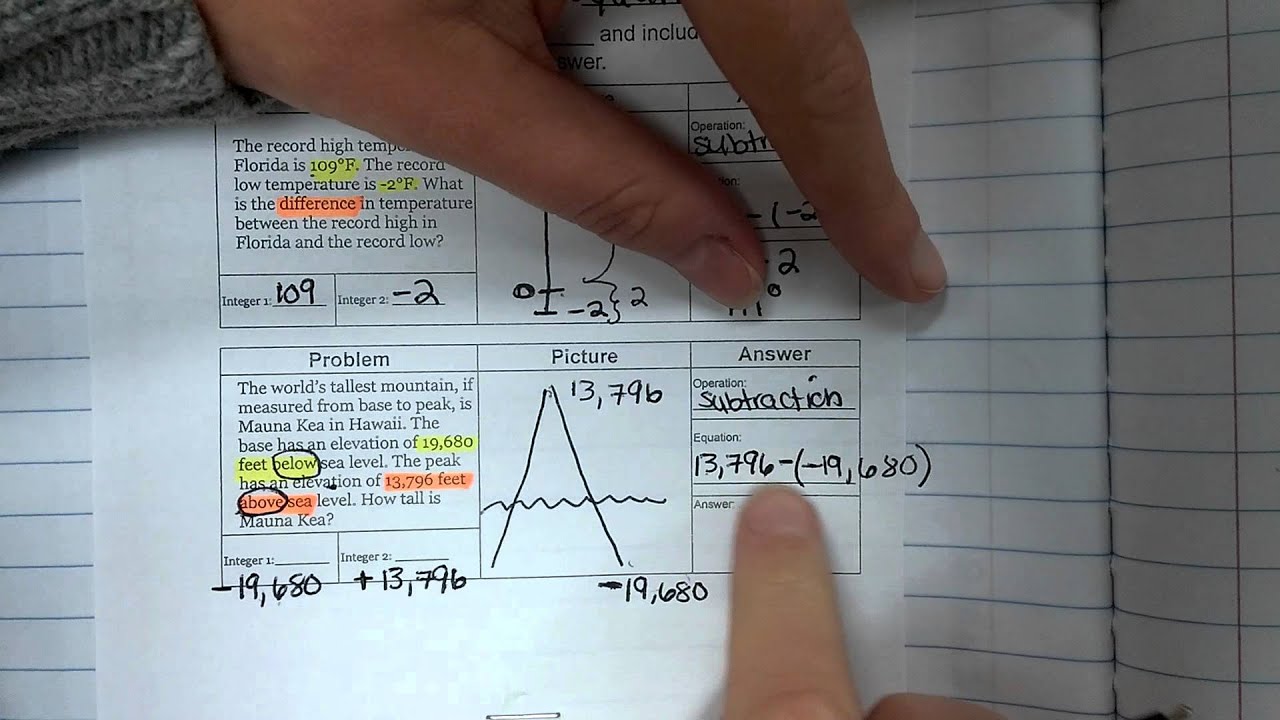 and includ
swer.
Operation:
subtr
The record high temp
Florida is 109°F. The record
low temperature is -2°F. What
is the difference in temperature
between the record high in
Florida and the record low?
- (-2
2
Integer 1: 109
Integer 2: -2
0
-2 } 2
Problem
Picture
Answer
The world's tallest mountain, if
measured from base to peak, is
Mauna Kea in Hawaii. The
base has an elevation of 19,680
feet below sea level. The peak
has an elevation of 13,796 feet
above sea level. How tall is
Mauna Kea?
13,796
Operation:
subtraction
Equation:
13,796-(-19,680)
Answer:
Integer 1:
Integer 2:
-19,680
+13,796
-19,680